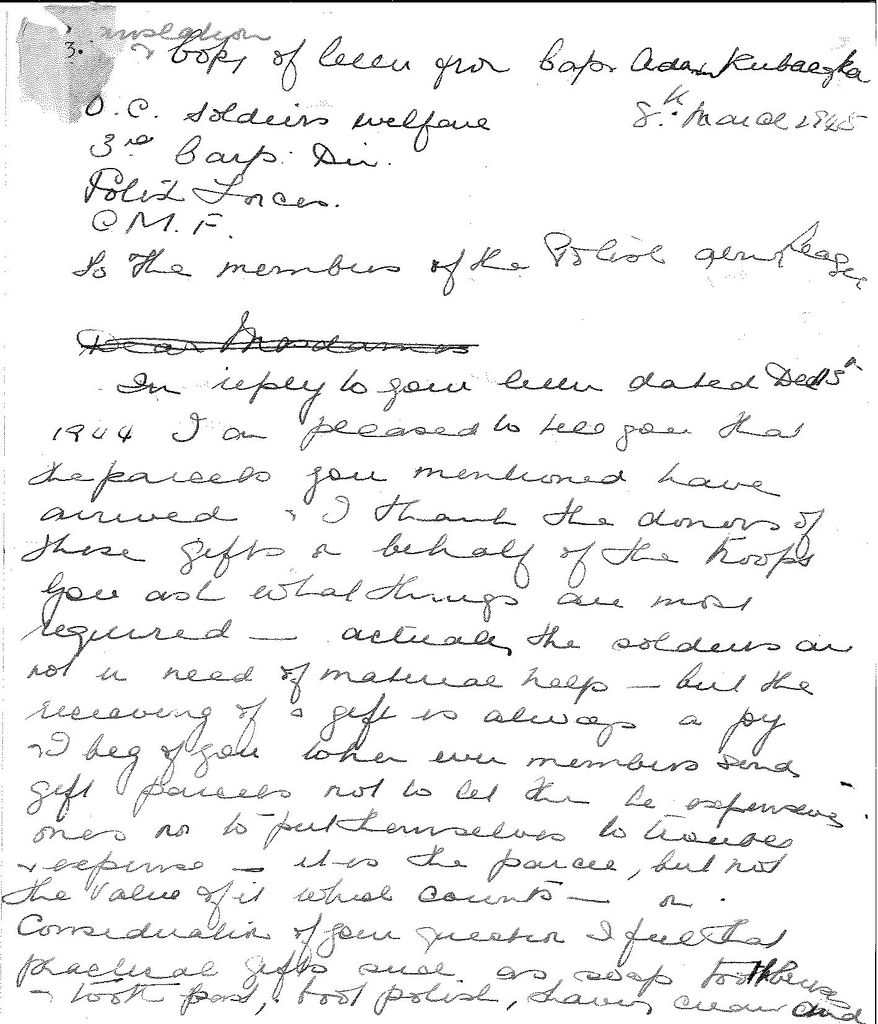 3. Translation
& Copy of letter from Capt. Adam Kubaczka
O.C. Soldiers welfare 8th March 1945
3rd Carp. Div.
Polish Forces.
C.M.F.
To the members of the Polish Army League
Dear Mesdames
In reply to your letter dated Dec 15th
1944 I am pleased to tell you that
the parcels you mentioned have
arrived & I thank the donors of
these gifts on behalf of the troops
You ask what things are most
required — actually the soldiers are
not in need of material help — but the
receiving of a gift is always a joy
& I beg of you when ever members send
gift parcels not to let them be expensive
ones nor to put themselves to trouble
& expense — it is the parcel, but not
the value of it which counts — on
consideration of your question I feel that
practical gifts such as soap toothbrush
& tooth paste, boot polish, shaving cream and